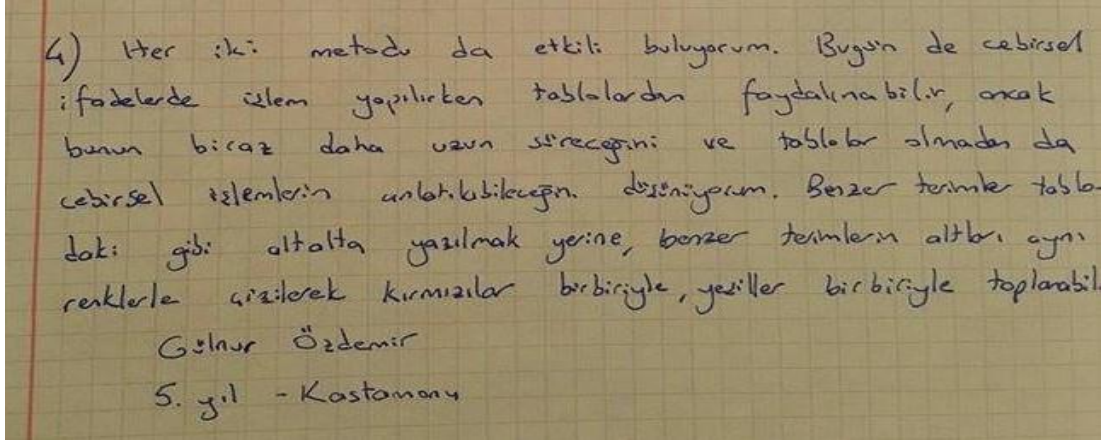 4) Her iki metodu da etkili buluyorum. Bugün de cebirsel
ifadelerde işlem yapılırken tablolardan faydalınabilir, ancak
bunun biraz daha uzun süreceğini ve tablolar olmadan da
cebirsel işlemlerin anlatılabileceğini düşünüyorum. Benzer terimler tablo-
daki gibi altalta yazılmak yerine, benzer terimlerin altları aynı
renklerle çizilerek kırmızılar birbiriyle, yeşiller birbiriyle toplanabil
Gülnur Özdemir
5. yıl - Kastamonu